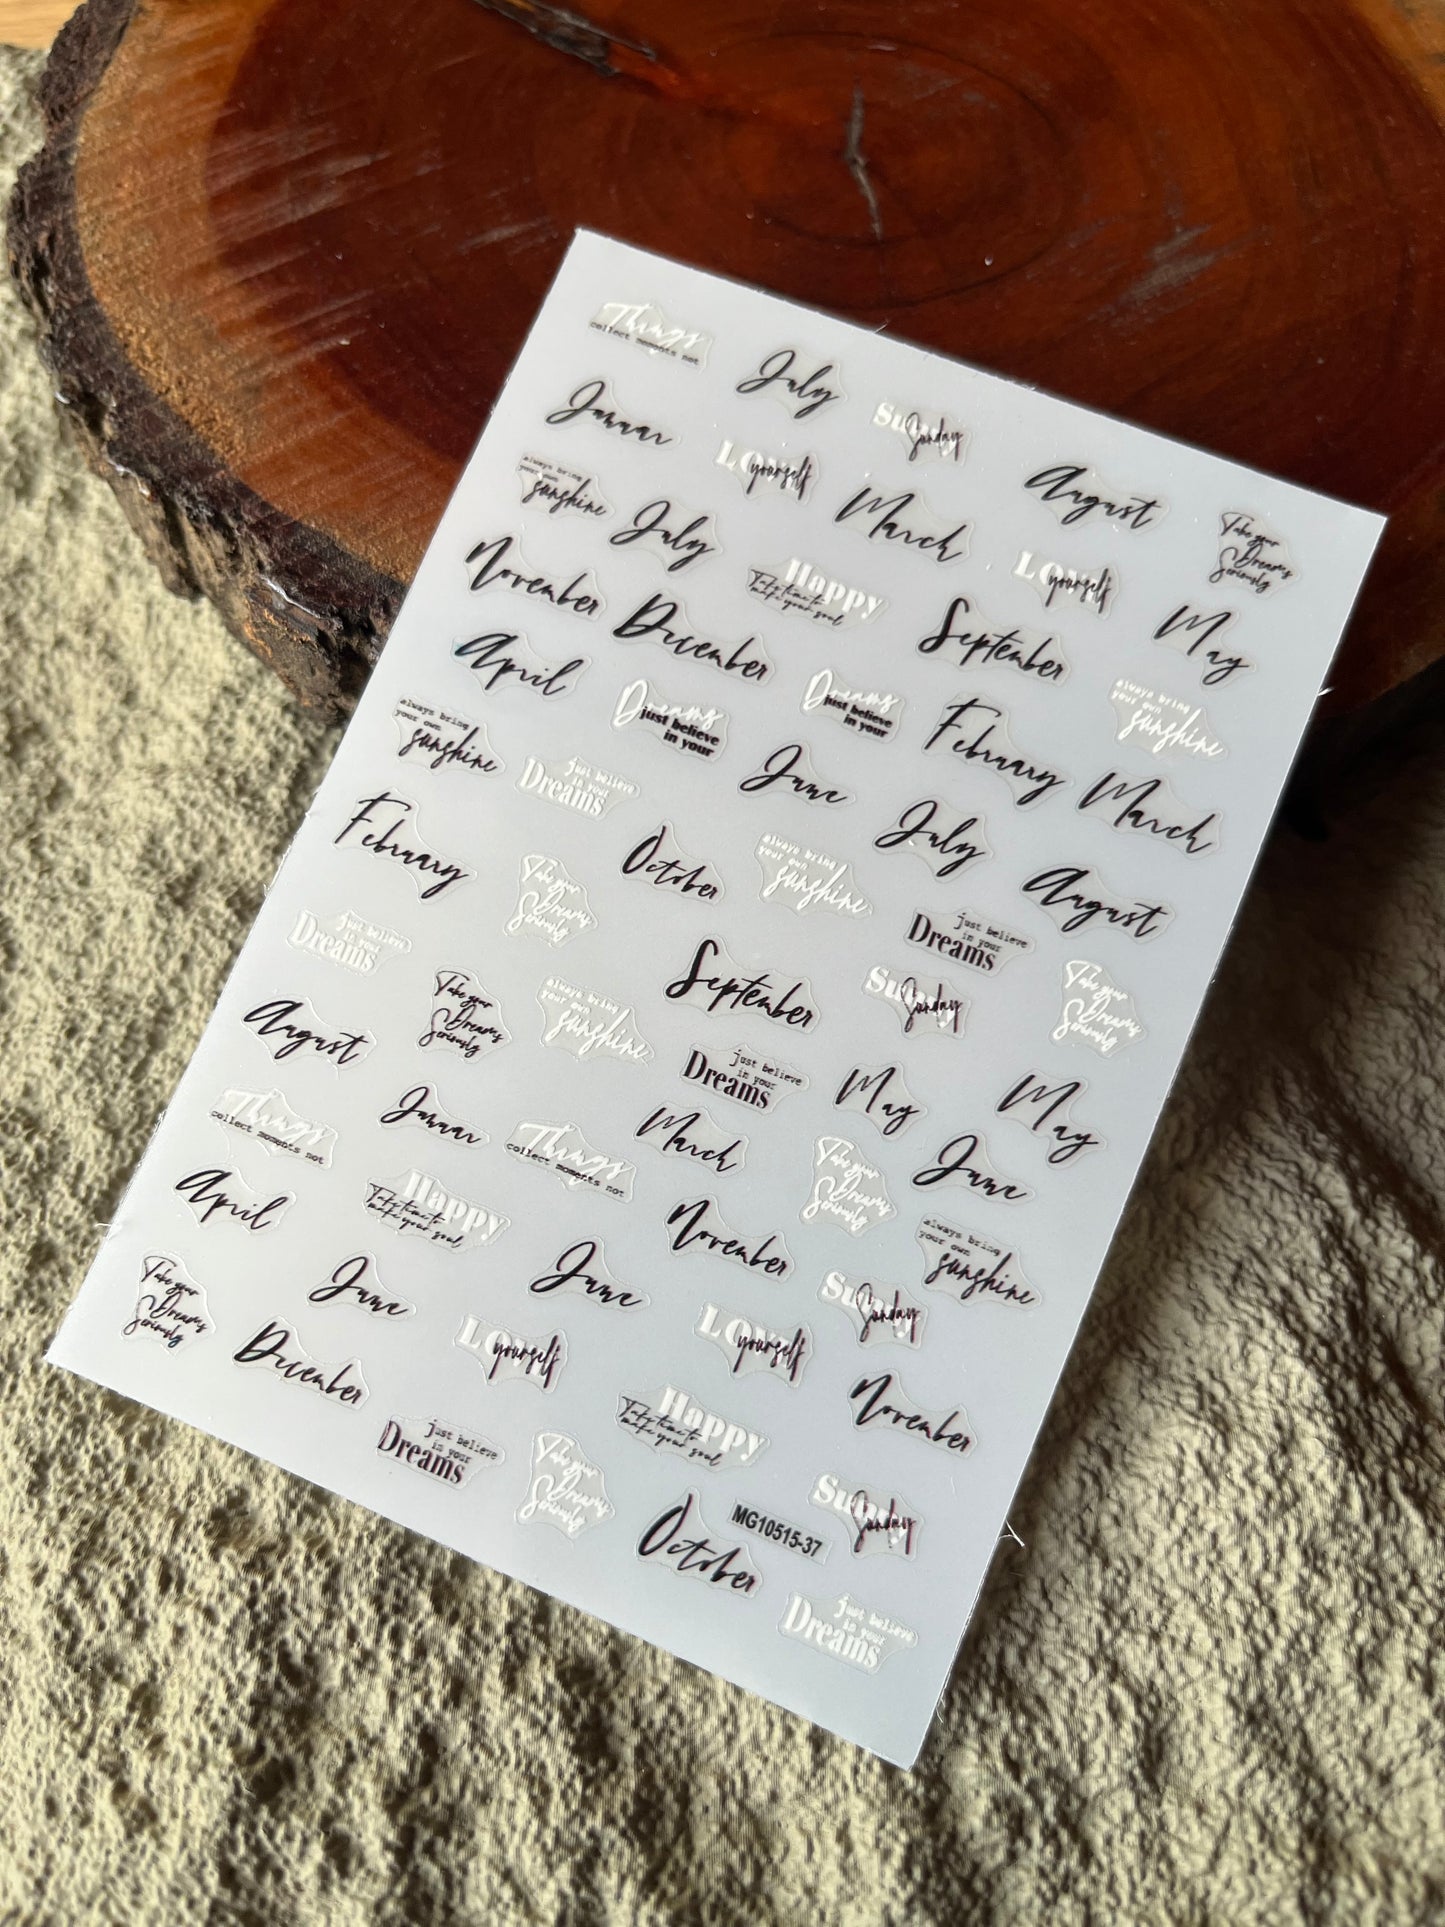 Things
collect moments not
July
Januar
Sunday
Sunday
LOVE
yourself
August
always bring
your own
sunshine
March
Take your
Dreams
Seriously
July
LOVE
yourself
November
Happy
Take time to
make your soul
May
December
September
April
always bring
your own
sunshine
Dreams
just believe
in your
Dreams
just believe
in your
February
always bring
your own
sunshine
June
March
just believe
in your
Dreams
July
February
October
always bring
your own
sunshine
August
Take your
Dreams
Seriously
just believe
in your
Dreams
just believe
in your
Dreams
September
Sunday
Sunday
Take your
Dreams
Seriously
August
Take your
Dreams
Seriously
always bring
your own
sunshine
just believe
in your
Dreams
May
May
Things
collect moments not
Januar
March
June
Things
collect moments not
Take your
Dreams
Seriously
April
Happy
Take time to
make your soul
November
always bring
your own
sunshine
Take your
Dreams
Seriously
June
June
Sunday
Sunday
December
LOVE
yourself
LOVE
yourself
November
Happy
Take time to
make your soul
just believe
in your
Dreams
Take your
Dreams
Seriously
Sunday
Sunday
October
MG10515-37
just believe
in your
Dreams